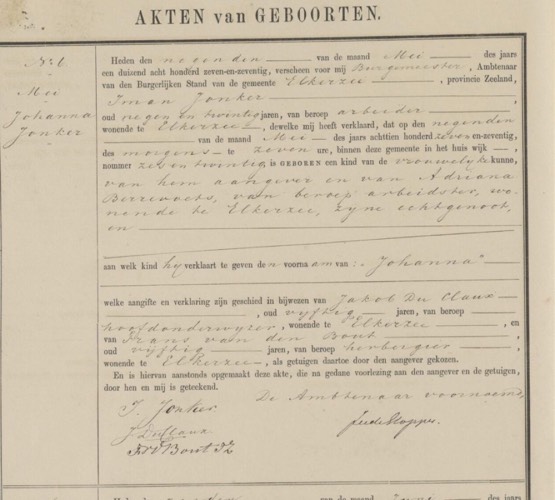 AKTEN van GEBOORTEN.
No. 6
Mei
Johanna
Jonker
Heden den negenden van de maand Mei des jaars
een duizend acht honderd zeven-en-zeventig, verscheen voor mij Burgemeester, Ambtenaar
van den Burgerlijken Stand van de gemeente Elkerzee, provincie Zeeland,
Iman Jonker
oud negen en twintig jaren, van beroep arbeider
wonende te Elkerzee, dewelke mij heeft verklaard, dat op den negenden
van de maand Mei des jaars achttien honderd zeven-en-zeventig,
des morgens te zeven ure, binnen deze gemeente in het huis wijk
nommer zes en twintig is GEBOREN een kind van de vrouwelijke kunne,
van hem aangever en van Adriana
Berrevoets, van beroep arbeidster, wo-
nende te Elkerzee, zyne echtgenoot,
en
aan welk kind hij verklaart te geven den voornaam van: "Johanna"
welke aangifte en verklaring zijn geschied in bijwezen van Jakob Du Claux
, oud vijftig jaren, van beroep
hoofdonderwyzer, wonende te Elkerzee, en
van Frans van den Bout
oud vijftig jaren, van beroep herbergier
wonende te Elkerzee, als getuigen daartoe door den aangever gekozen.
En is hiervan aanstonds opgemaakt deze akte, die na gedane voorlezing aan den aangever en de getuigen,
door hen en mij is geteekend.
De Ambtenaar voornoemd,
I. Jonker
J DuClaux
F. v d Bout